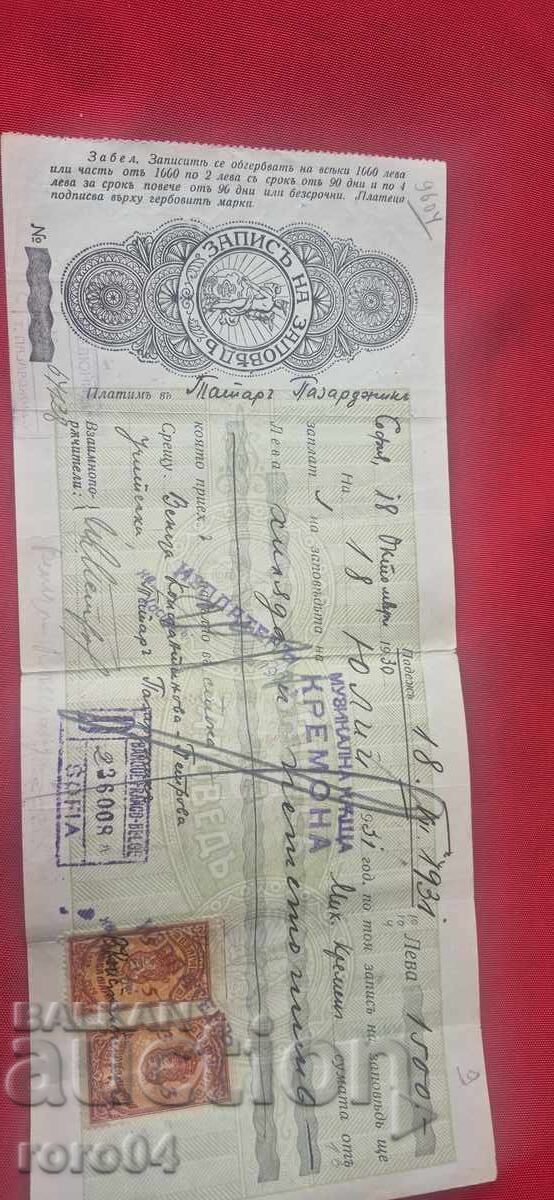 Забел. Записитѣ се обгербватъ на всѣки 1000 лева
или часть отъ 1000 по 2 лева съ срокъ отъ 90 дни и по 4
лева за срокъ повече отъ 90 дни или безсрочни. Платеца
подписва върху гербовитѣ марки.
9604
№
ЗАПИСЪ НА ЗАПОВѢДЬ
Платимъ въ Татаръ Пазарджикъ
София, 18 Октомври 1930
Падежъ 18. VII 1931
Лева 1500.-
На 18 Юлий 1931 год. по тоя записъ на заповѣдь ще
заплат на заповѣдьта на
МУЗИКАЛНА КѪЩА
КРЕМОНА
Мих. Кременъ сумата отъ
Лева хиляда и петстотинъ
която приех
Срещу: Венца Константинова - Петрова
Учителка
Татаръ Пазар
Взаимнопо-
рѫчители:
BANQUE FRANCO-BELGE
236008
SOFIA
BALKAN
auction
roro04